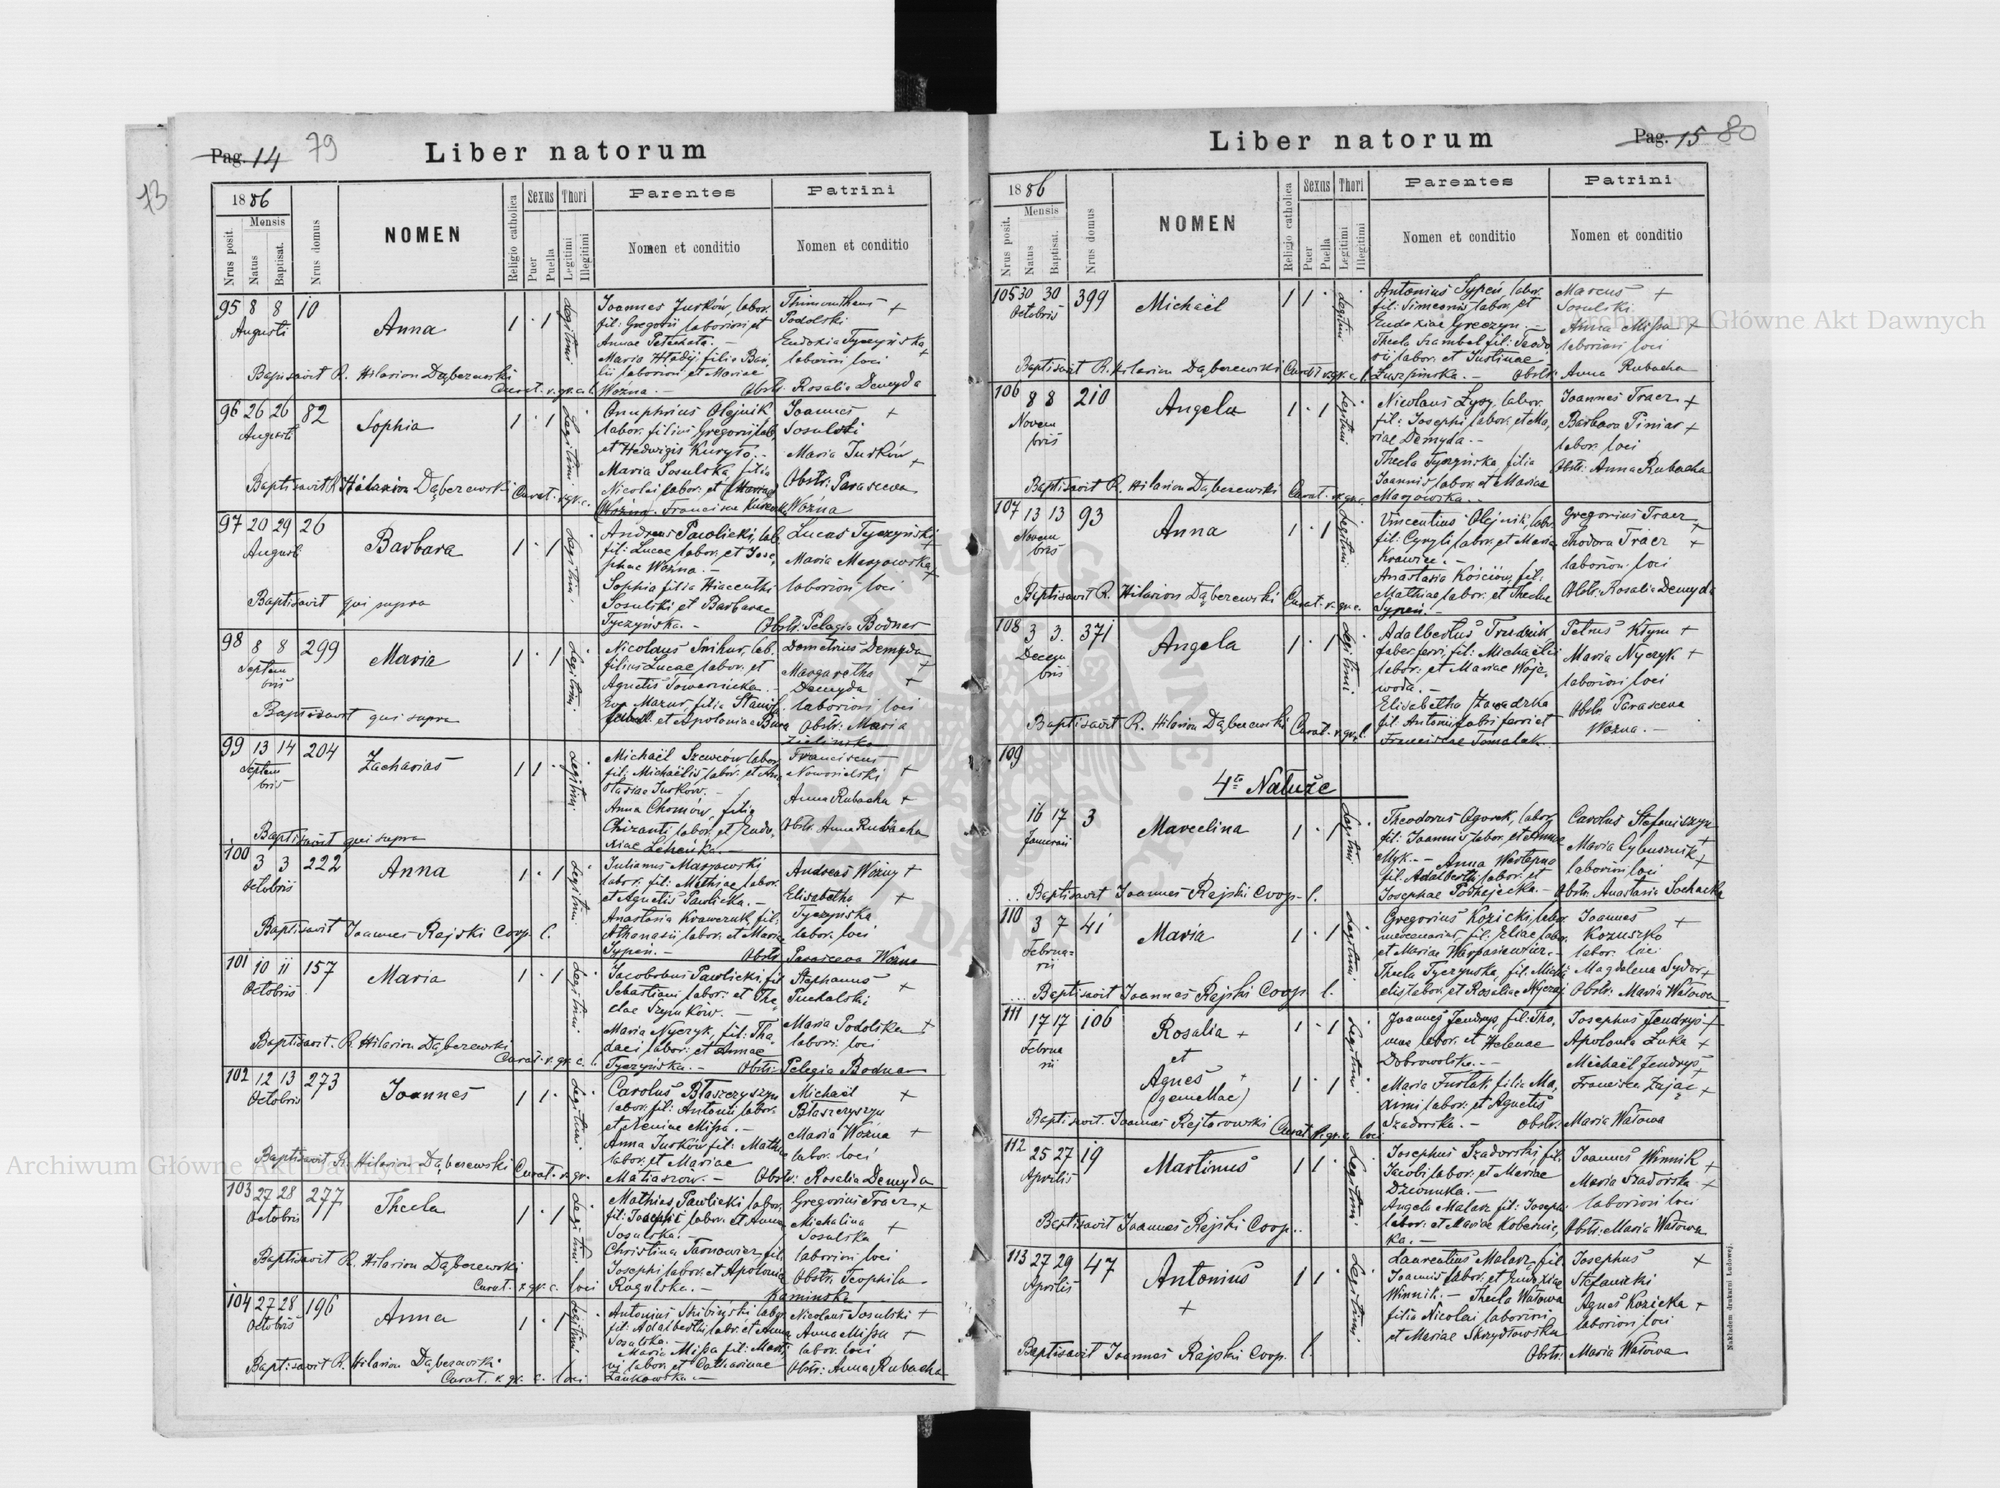 Pag. 14 79
Liber natorum
13
1886
Mensis
Nrus posit.
Natus
Baptisat.
Nrus domus
NOMEN
Religio catholica
Sexus
Puer
Puella
Thori
Legitimi
Illegitimi
Parentes
Nomen et conditio
Patrini
Nomen et conditio
95 8 8 10
Augusti
Anna
1 · 1
Legitimi
Joannes Jurków, labor.
fil: Gregorii laborioni et
Annae Petechata. —
Maria Hładij filia Basi
lii laborion. et Mariae
Woźna. —
Thimontheus +
Podolski
Eudoxia Tyczyńska +
laborioni loci
Obstr: Rosalia Demyda
Baptisavit R. Hilarion Dąberewski
Curat. r. gr. c. l.
96 26 26 82
Augusti
Sophia
1 · 1
Legitimi
Onuphrius Olejnik
labor. filius Gregorii lab.
et Hedwigis Kuryło. —
Maria Sosulska filia
Nicolai labor. et Mariae
Woźna. Franciscae
Joannes +
Sosulski
Maria Jurków +
Obstr: Parasceva
Woźna
Baptisavit R. Hilarion Dąberewski Curat. r. gr. c.
97 20 29 26
Augusti
Barbara
1 · 1
Legitimi
Andreas Pawlicki, lab.
fil: Lucae labor. et Jose,
phae Woźna. —
Sophia filia Hiacenthi
Sosulski et Barbarae
Tyczyńska. —
Lucas Tyczyński +
Maria Maszowska +
laborioni loci
Obstr: Pelagia Bodnar
Baptisavit qui supra
98 8 8 299
Septem
bris
Maria
1 · 1
Legitimi
Nicolaus Snihur, lab.
filius Lucae, labor. et
Agnetis Towarnicka.
Eva Mazur, filia Stanis.
et Apoloniae Bura
Demetrius Demyda +
Margaretha
Demyda +
laborioni loci
Obstr: Maria
Zielinska
Baptisavit qui supra
99 13 14 204
Septem
bris
Zacharias
1 1 ·
Legitimi
Michaël Szewców labor.
fil: Michaëlis labor. et Ana
stasiae Jurków. —
Anna Chomów, filia
Chizanti labor. et Eudo,
xiae Leheńka. —
Franciscus
Nowosielski +
Anna Rubacha +
Obstr. Anna Rubacha
Baptisavit qui supra
100 3 3 222
Octobris
Anna
1 · 1
Legitimi
Julianus Maszowski
labor. fil: Mathiae labor.
et Agnetis Pawlicka. —
Anastasia Krawczuk, fil:
Athanasii labor. et Mariae
Sypeń. —
Andreas Woźny +
Elisabetha +
Tyczynska
labor. loci
Obstr: Parasceva Woźna
Baptisavit Joannes Rajski Coop. l.
101 10 11 157
Octobris
Maria
1 · 1
Legitimi
Jacobobus Pawlicki, fil
Sebastiani labor. et The
clae Szymków. —
Maria Nyczyk, fil: Tha,
daei labor: et Annae
Tyczyńska. —
Stephanus +
Puchalski
Maria Podolska +
labor: loci
Obstr: Pelegia Bodnar
Baptisavit. R. Hilarion Dąberewski
Curat. r. gr. c. l.
102 12 13 273
Octobris
Joannes
1 1 ·
Legitimi
Carolus Błaszczyszyn
labor. fil: Antonii labor.
et Xeniae Missa. —
Anna Jurków fil: Math.
labor. et Mariae
Matiaszow. —
Michaël +
Błaszczyszyn
Maria Woźna +
labor. loci
Obstr: Rosalia Demyda
Baptisavit R. Hilarion Dąberewski Curat. r. gr.
103 27 28 277
Octobris
Thecla
1 · 1
Legitimi
Mathias Pawlicki, labor.
fil: Josephi labor. et Annae
Sosulska. —
Christina Tarnowicz, fil.
Josephi labor. et Apolonia
Rogulska. —
Gregorius Tracz +
Michalina +
Sosulska
laborioni loci
Obstr: Teophila
Kaminska
Baptisavit R. Hilarion Dąberewski
Curat. r. gr. c. loci
104 27 28 196
Octobris
Anna
1 · 1
Legitimi
Antonius Skibiński labor.
fil: Adalberthi labor. et Annae
Sosulska. —
Maria Missa fil: Marti,
ni labor. et Catharinae
Zankowska. —
Nicolaus Sosulski +
Anna Missa +
labor. loci
Obstr: Anna Rubacha
Baptisavit R. Hilarion Dąberewski
Curat. r. gr. c. loci
Liber natorum
Pag. 15 80
1886
Mensis
Nrus posit.
Natus
Baptisat.
Nrus domus
NOMEN
Religio catholica
Sexus
Puer
Puella
Thori
Legitimi
Illegitimi
Parentes
Nomen et conditio
Patrini
Nomen et conditio
105 30 30 399
Octobris
Michaël
1 1 ·
Legitimi
Antonius Sypeń, labor.
fil: Simeonis labor. et
Eudoxiae Greczyn. —
Thecla Szambel fil: Teodo
rii labor. et Justinae
Łuszpinska. —
Marcus +
Sosulski
Anna Missa +
laborioni loci
Obstr: Anna Rubacha
Baptisavit R. Hilarion Dąberewski Curat r. gr. c. l.
106 8 8 210
Novem
bris
Angela
1 · 1
Legitimi
Nicolaus Łysy, labor.
fil: Josephi labor. et Ma,
riae Demyda. —
Thecla Tyczyńska filia
Joannis labor. et Mariae
Maszowska. —
Joannes Tracz +
Barbara Piniar +
labor. loci
Obstr: Anna Rubacha
Baptisavit R. Hilarion Dąberewski Curat. r. gr. c.
107 13 13 93
Novem
bris
Anna
1 · 1
Legitimi
Vincentius Olejnik, labor.
fil: Cyrylli labor. et Maria
Krawiec. —
Anastasia Kościów, fil:
Mathiae labor. et Thecla
Sypeń. —
Gregorius Tracz +
Theodora Tracz +
laborion: loci
Obstr: Rosalia Demyda
Baptisavit R. Hilarion Dąberewski Curat. r. gr. c.
108 3 3. 371
Decem
bris
Angela
1 · 1
Legitimi
Adalbertus Trzedzik,
faber ferri, fil: Michaëlis
labor: et Mariae Woje,
woda. —
Elisabetha Zawadzka
fil. Antonii fabri ferri et
Franciscae Tomalak.
Petrus Kłym +
Maria Nyczyk +
laborioni loci
Obstr Parasceva
Woźna. —
Baptisavit R. Hilarion Dąberewski Curat. r. gr. l.
109
4to Natuże
16 17 3
Januarii
Marcelina
1 · 1
Legitimi
Theodorus Ogorek, labor.
fil: Joannis labor. et Annae
Myk. — Anna Wastepna
fil. Adalberti labor. et
Josephae Podhajecka. —
Carolus Stefaniszyn +
Maria Cybusznik +
laborioni loci
Obstr. Anastasia Sochacka
Baptisavit Joannes Rajski Coop. l.
110 3 7 41
Februa=
rii
Maria
1 · 1
Legitimi
Gregorius Kozicki, labor
mercenarius, fil: Eliae labor.
et Mariae Warpasiewicz. —
Thecla Tyczynska, fil. Micha
elis labor. et Rosaliae Nyczaj
Joannes +
Kozuszko
labor. loci
Magdalena Sydor +
Obstr: Maria Watowa
Baptisavit Joannes Rajski Coop l.
111 17 17 106
Februa
rii
Rosalia +
et
Agnes +
(gemellae)
1 · 1
1 · 1
Legitimi
Joannes Jendrys, fil: Tho,
mae labor. et Helenae
Dobrowolska. —
Maria Furtak, filia Ma,
ximi labor: et Agnetis
Szadorska. —
Josephus Jendrys +
Apolonia Łuka +
Michaël Jendrys +
Francisca Zając +
Obstr: Maria Watowa
Baptisavit. Joannes Rajtarowski Curat r. gr. c. loci
112 25 27 19
Aprilis
Martinus
1 1 ·
Legitimi
Josephus Szadorski, fil.
Jacobi labor. et Mariae
Dzwonka. —
Angela Malasz fil: Joseph.
labor: et Mariae Kobernic,
ka. —
Joannes Winnik +
Maria Szadorska +
laborioni loci
Obstr: Maria Watowa
Baptisavit Joannes Rajski Coop..
113 27 29 47
Aprilis
Antonius
+
1 1 ·
Legitimi
Laurentius Malasz, fil.
Joannis labor. et Eudoxiae
Winnik. — Thecla Watowa
filia Nicolai laborioni
et Mariae Skrzydłowska
Josephus +
Stefanicki
Agnes Kozicka +
laborioni loci
Obstr: Maria Watowa
Baptisavit Joannes Rajski Coop. l.
Nakładem drukarni Ludowej.
Archiwum Główne Akt Dawnych
Archiwum Główne Akt Dawnych